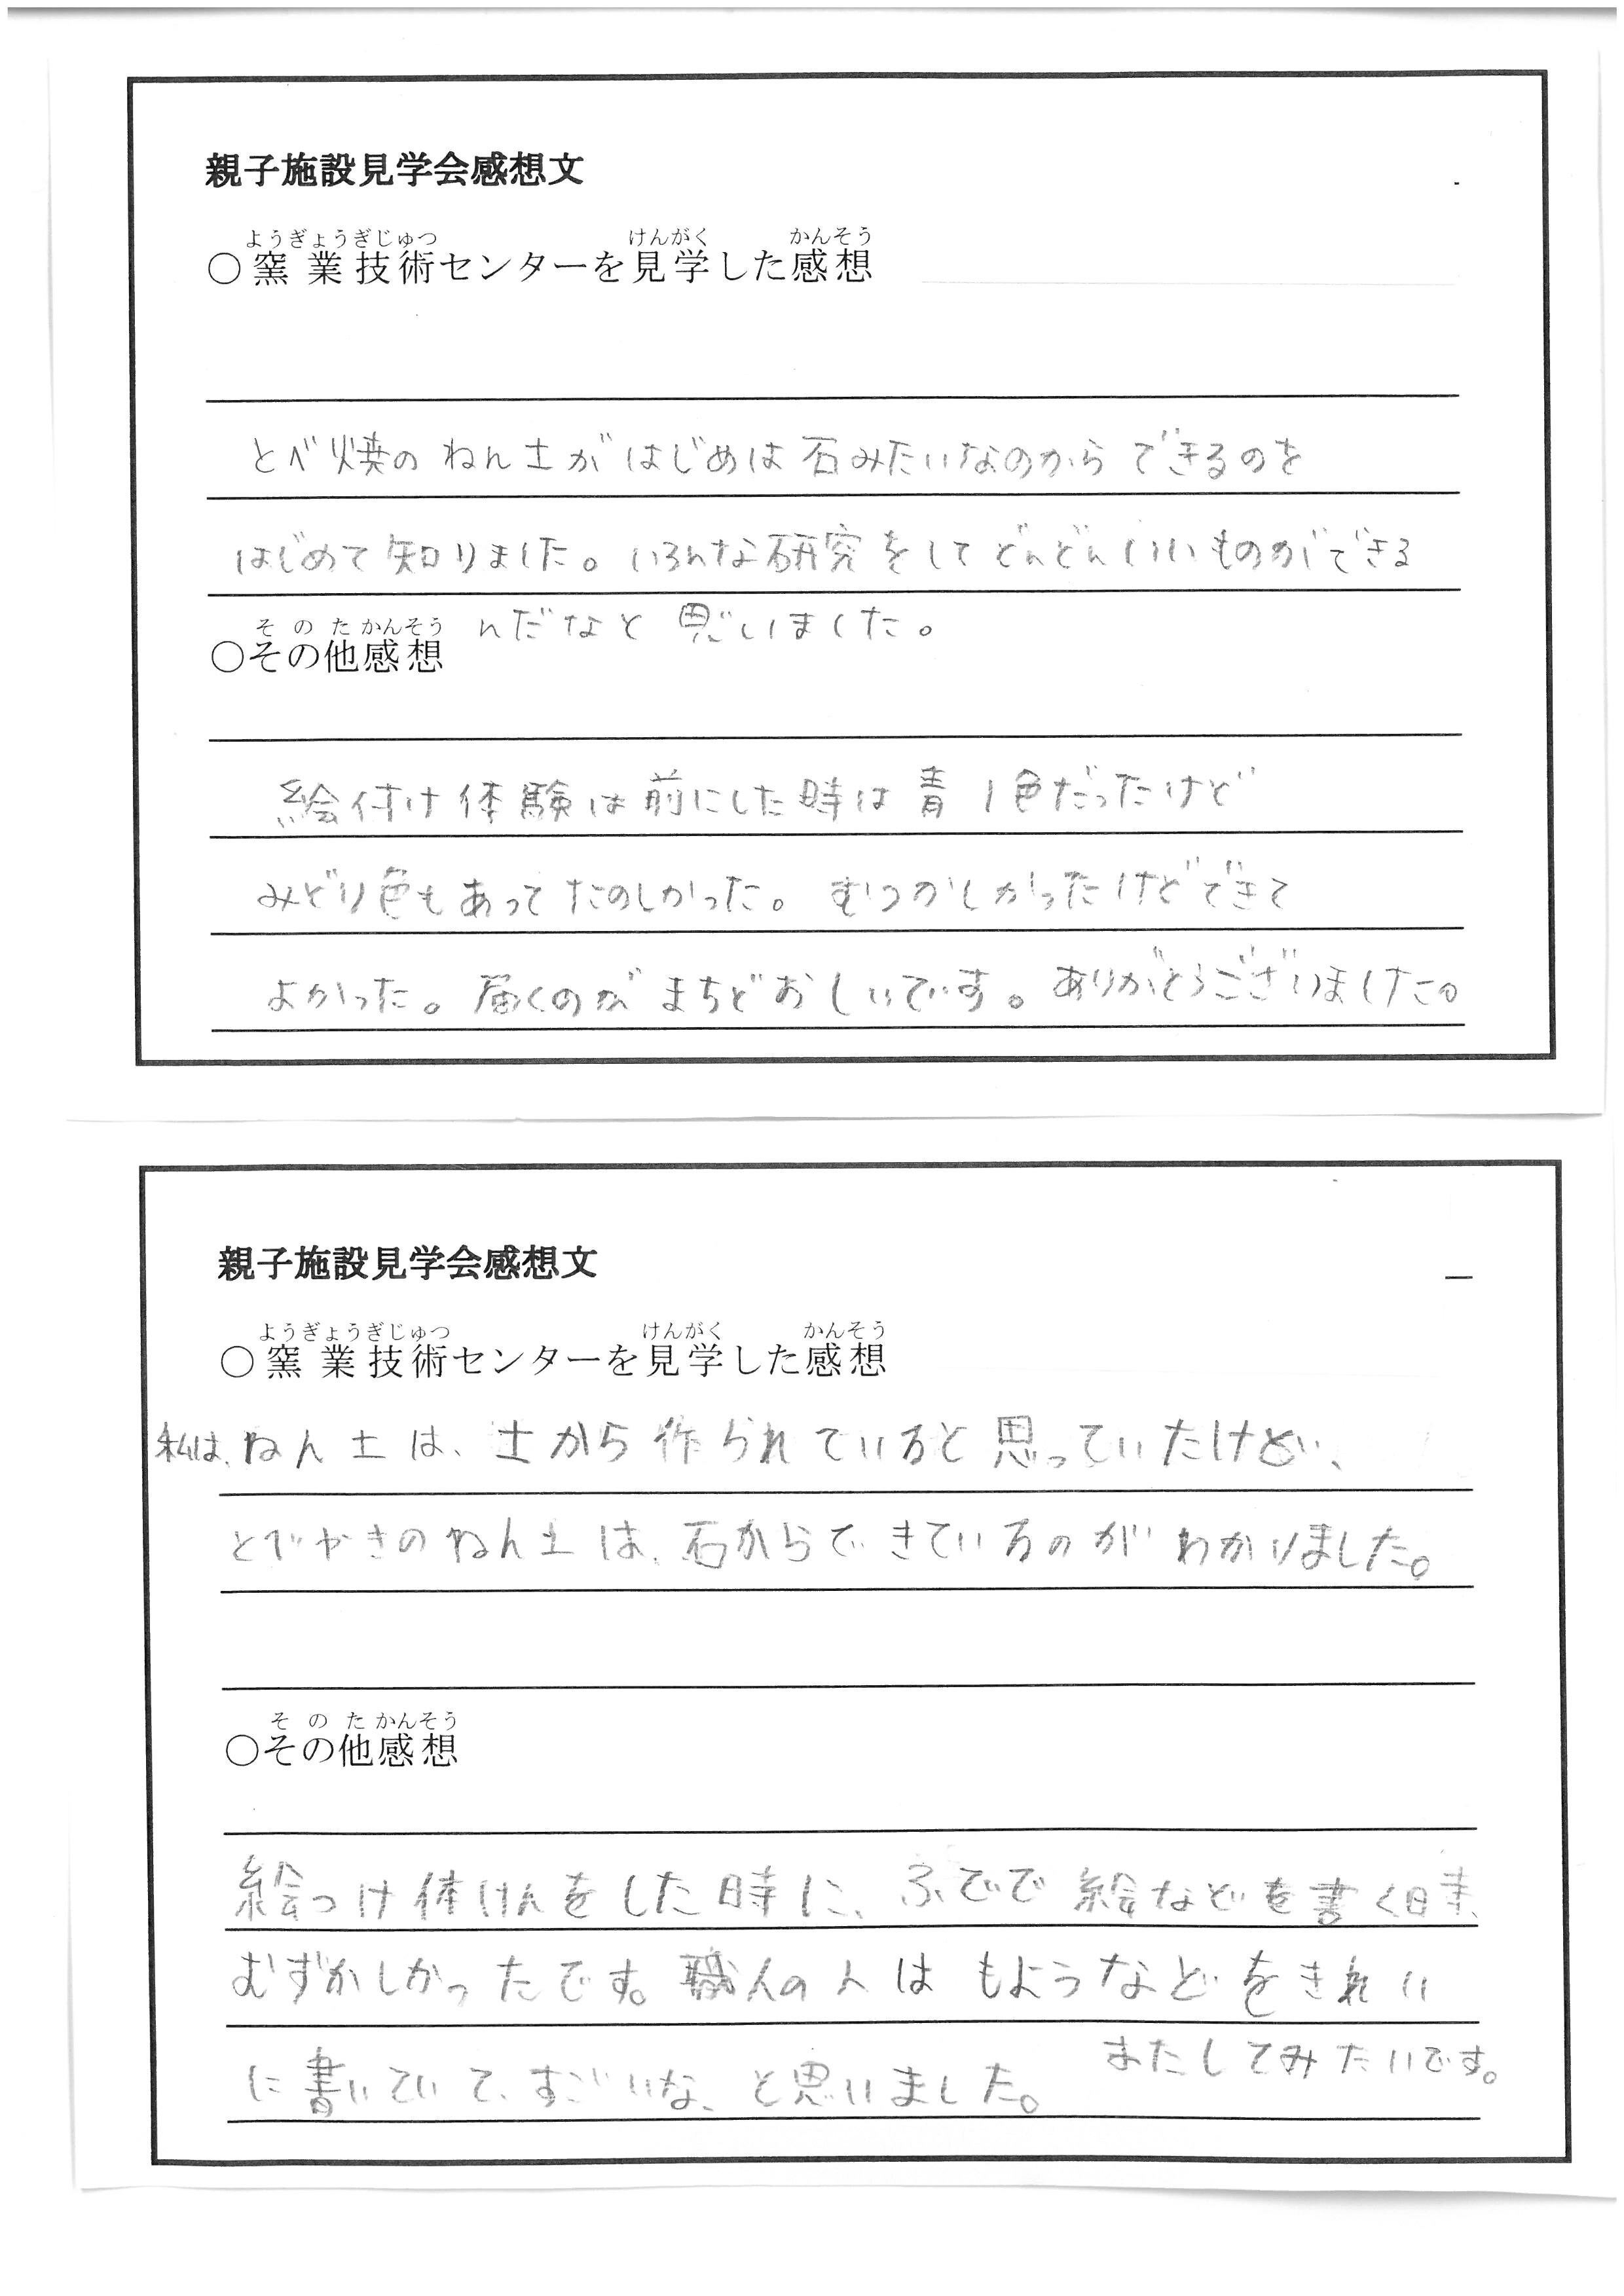 親子施設見学会感想文
ようぎょうぎじゅつ けんがく かんそう
○窯業技術センターを見学した感想
とべ焼のねん土がはじめは石みたいなのからできるのを
はじめて知りました。いろんな研究をしてどんどんいいものができる
んだなと思いました。
そのたかんそう
○その他感想
絵付け体験は前にした時は青1色だったけど
みどり色もあってたのしかった。むつかしかったけどできて
よかった。届くのがまちどおしいです。ありがとうございました。
親子施設見学会感想文
ようぎょうぎじゅつ けんがく かんそう
○窯業技術センターを見学した感想
私は、ねん土は、土から作られていると思っていたけど、
とべやきのねん土は、石からできているのがわかりました。
そのたかんそう
○その他感想
絵つけ体けんをした時に、ふでで絵などを書く時、
むずかしかったです。職人の人はもようなどをきれい
に書いていて、すごいな、と思いました。またしてみたいです。